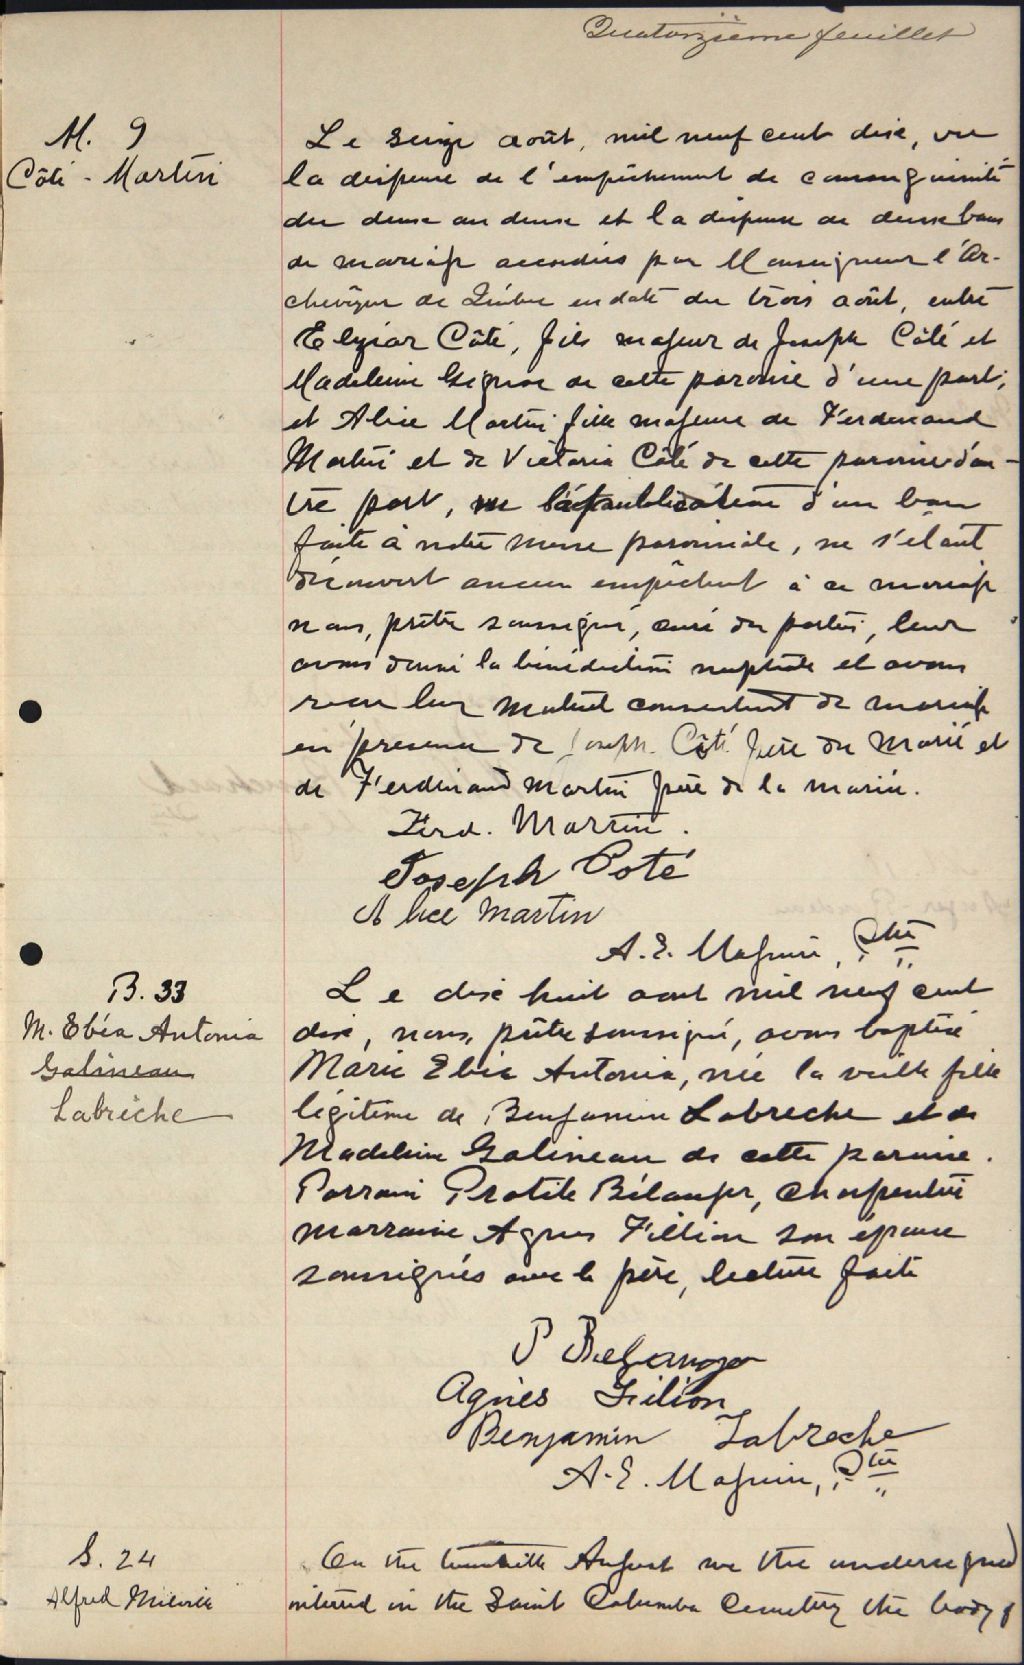 Quatorzième feuillet
M. 9
Côté - Martin
Le seize août, mil neuf cent dix, vu
la dispense de l'empêchement de consanguinité
du deux au deux et la dispense de deux bans
de mariage accordées par Monseigneur l'Ar-
chevêque de Québec en date du trois août, entre
Elzéar Côté, fils majeur de Joseph Côté et
Madeleine Gignac de cette paroisse d'une part,
et Alice Martin fille majeure de Ferdinand
Martin et de Victoria Côté de cette paroisse d'au-
tre part, vu la publication d'un ban
faite à notre messe paroissiale, ne s'étant
découvert aucun empêchement à ce mariage
nous, prêtre soussigné, curé des parties, leur
avons donné la bénédiction nuptiale et avons
reçu leur mutuel consentement de mariage
en présence de Joseph Côté père du marié et
de Ferdinand Martin père de la mariée.
Ferd. Martin.
Joseph Coté
Alice Martin
A. E. Maguire, Ptre
B. 33
M. Ebéa Antonia
Galineau
Labrèche
Le dix huit aout mil neuf cent
dix, nous, prêtre soussigné, avons baptisé
Marie Ebéa Antonia, née la veille fille
légitime de Benjamin Labreche et de
Madeleine Galineau de cette paroisse.
Parrain Bélanger, charpentier
marraine Agnes Fillion son épouse
soussignés avec le père, lecture faite
P Belanger
Agnès Filion
Benjamin Labreche
A. E. Maguire, Ptre
S. 24
Alfred
On the twentieth August we the undersigned
interred in the Saint Columba Cemetery the body of